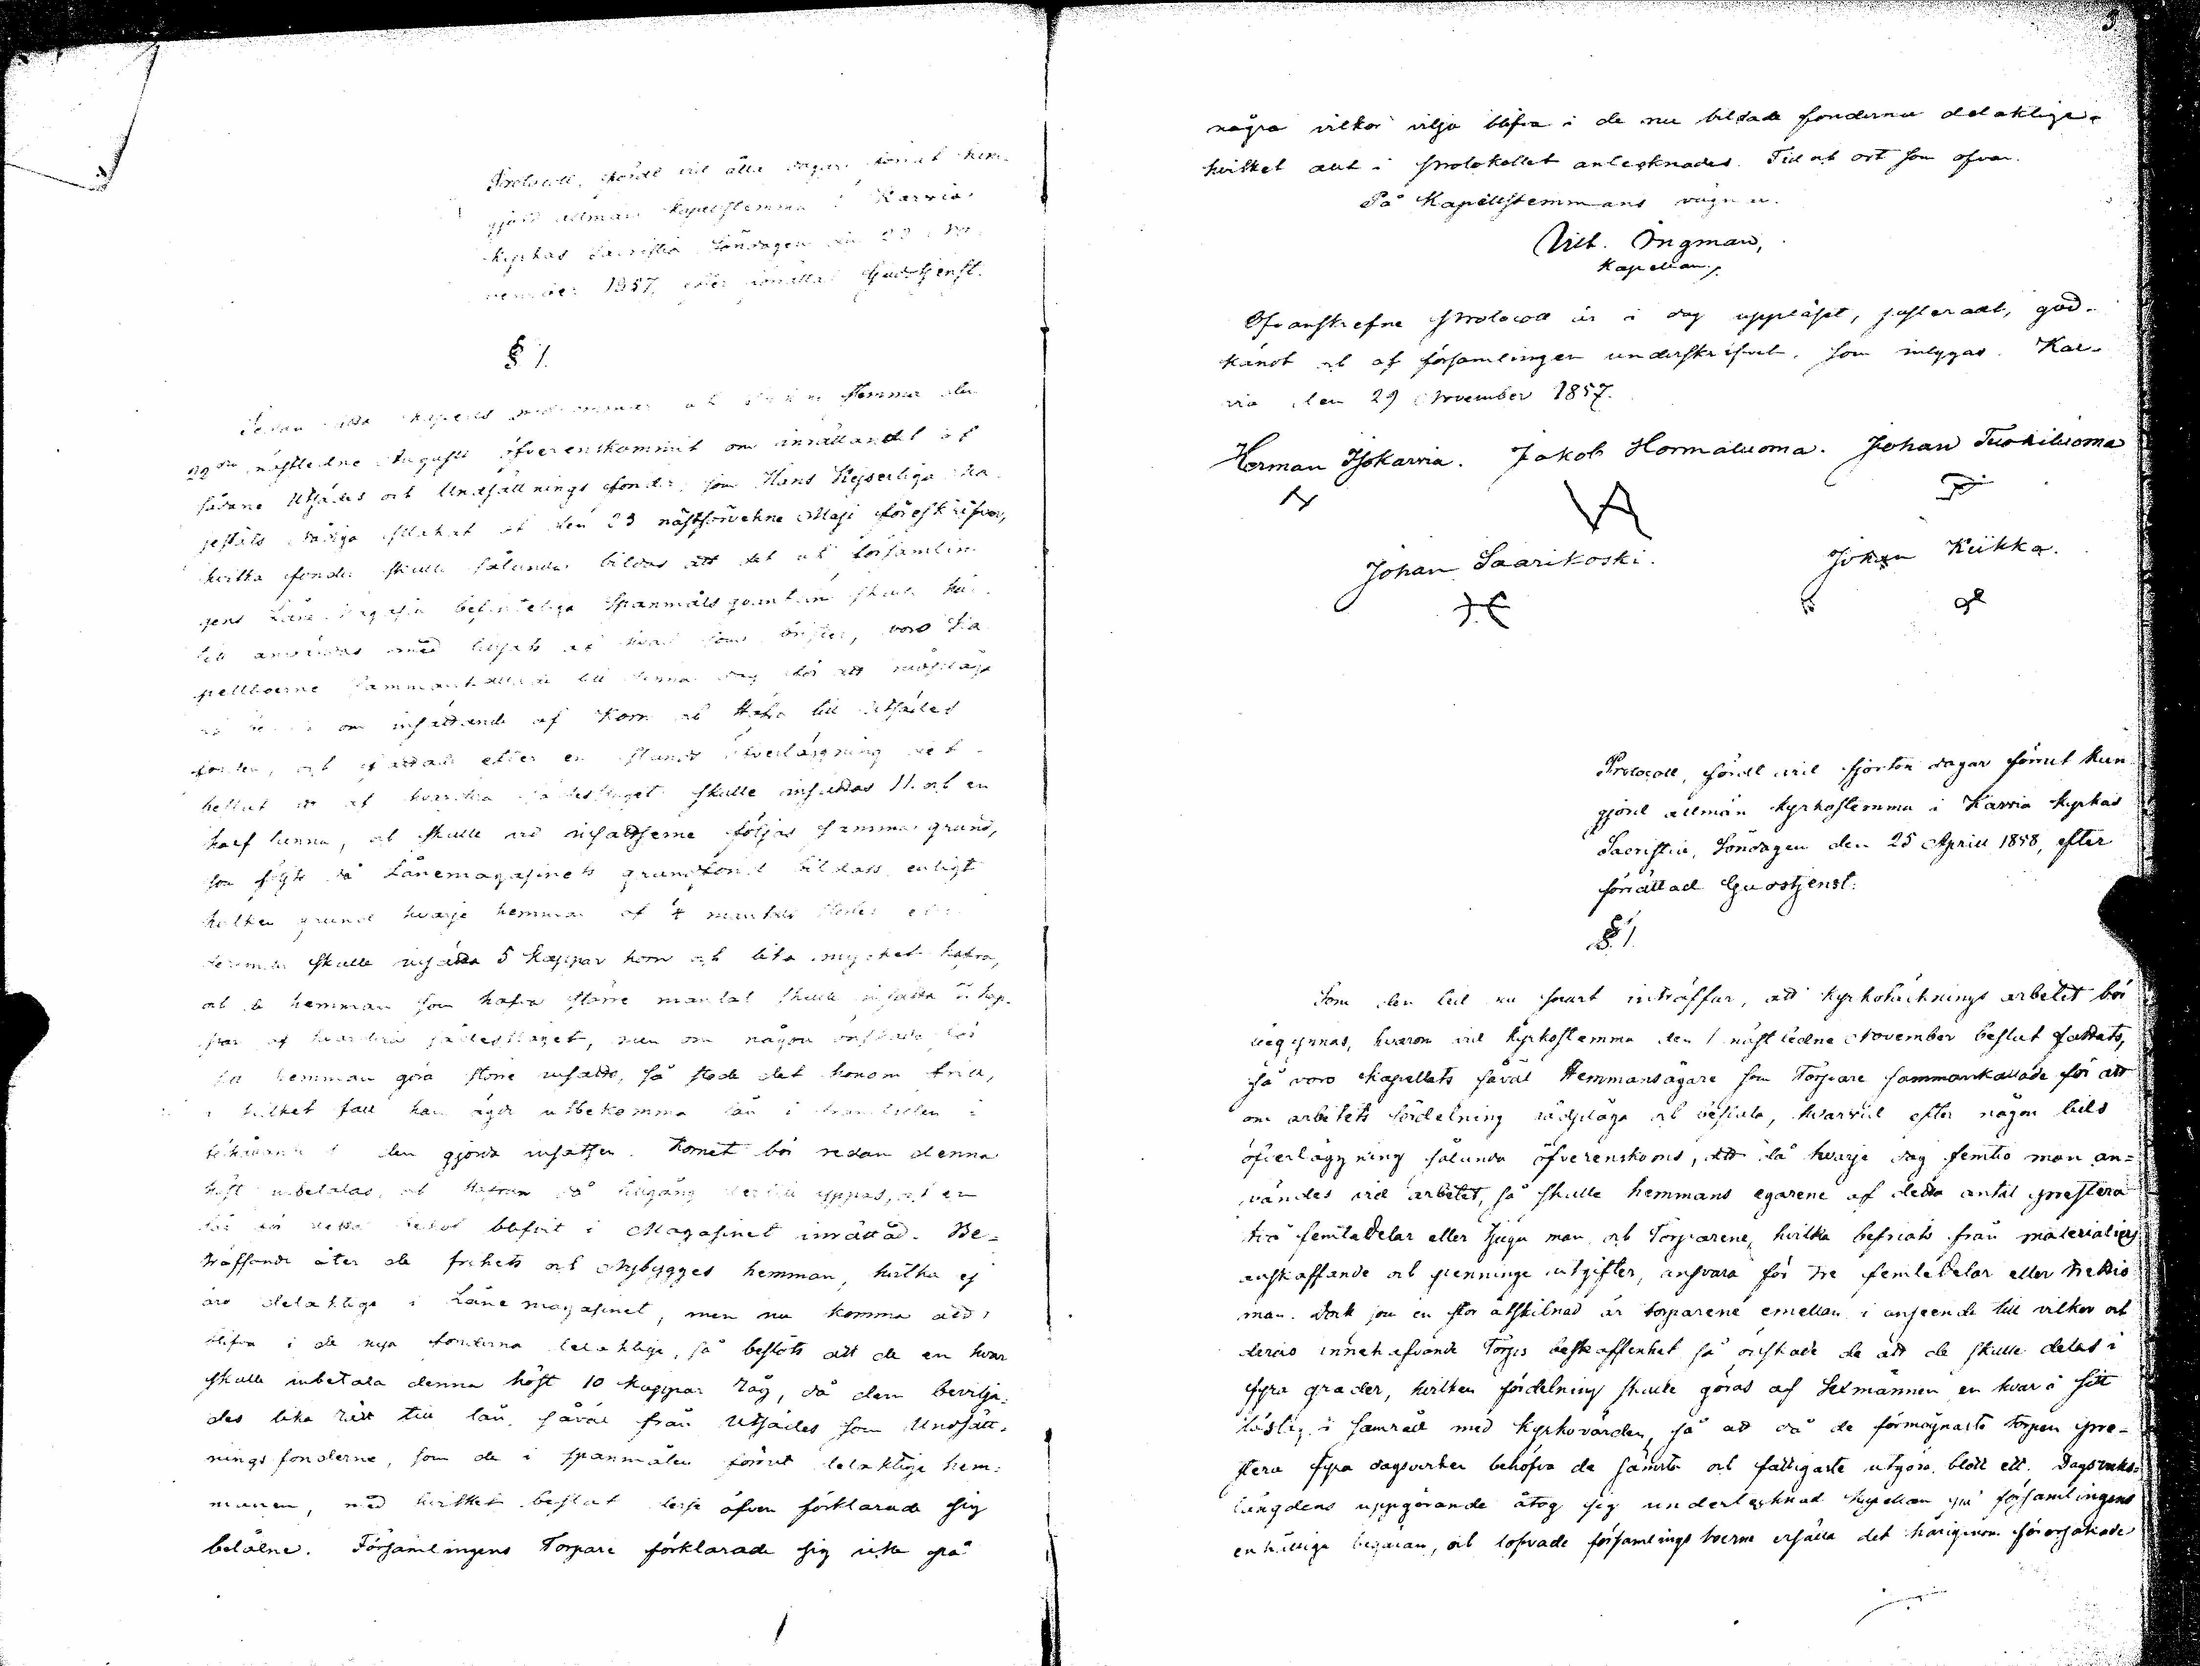 Protocoll, fördt vid åtta dagar förrut kun-
gjord allmän Kapellstemma i Karvia
kyrkas Sacristia Söndagen den 22 No-
vember 1857, efter förrättad Gudstjenst.
§ 1.
Sedan detta Kapells stemma den
29de nästledne Augusti öfverenskommit om inrättandet af
sådane Utsädes och Undsättnings fonder, som Hans Kejserliga Ma-
jestäts Nådiga af den 23 nästförvekne Maji föreskrifver,
hvilka fonder skulle sålunda bildas att det uti församlin-
gens Låne Magasin befinteliga Spanmåls quantum skulle här-
till användas med tillsats af hvad som brister, voro Ka-
pellboerne sammankallade till denna dag för att rådslaga
om insättande af Korn och Hafra till Utsädes
fonden, och fattade efter en stunds öfverläggning det
beslut att af hvardera sädesslaget skulle insättas 11 och en
half tunna, och skulle vid insattserne följas samma grund,
som följts då Lånemagasinets grundfond bildats, enligt
hvilken grund hvarje hemman af 1/4 mantals storlek eller
derunder skulle insätta 5 kappar korn och lika mycket hafra,
och de hemman som hafva större mantal skulle insätta kap-
par af hvardera sädesslaget, men om någon önskade för
sitt hemman göra större insatts, så stode det honom fritt,
i hvilket fall han äger utbekomma lån i framtiden i
den gjorda insattsen. Kornet bör redan denna
höst inbetalas, och Hafran då tillgång dertill yppas, och en
lår för detta behof blifvit i Magasinet inrättad. Be-
träffande åter de frihets och Nybygges hemman, hvilka ej
äro delaktiga i Lånemagasinet, men nu komma att
blifva i de nya fonderna delaktige, så beslöts att de en hvar
skulle inbetala denna höst 10 kappar Råg, då dem bevilja-
des lika rätt till lån, såväl från Utsädes som Undsätt-
nings fonderne, som de i spanmålen förrut delaktige hem-
manen, med hvilket beslut desse äfven förklarade sig
belåtne. Församlingens Torpare förklarade sig icke på
3.
några vilkor vilja blifva i de nu bildade fonderna delaktige,
hvilket allt i Protokollet antecknades. Tid och ort som ofvan.
På Kapellstemmans vägnar.
Vilh. Ingman,
Kapellan.
Ofvanskrefne Protocoll är i dag uppläset, justeradt, god-
kändt och af församlingen underskrifvet, som intygas. Kar-
via den 29 November 1857.
Herman Isokarvia. Jakob Hormaluoma. Johan Tuohiluoma
Johan Saarikoski. Johan Kiikka.
Protocoll, fördt vid fjorton dagar förrut kun-
gjord allmän kyrkostemma i Karvia kyrkas
Sacristia, Söndagen den 25 Aprill 1858, efter
förrättad Gudstjenst.
§ 1.
Som den tid nu snart inträffar, att kyrkotäcknings arbetet bör
begynnas, hvarom vid kyrkostemma den 1 nästledne November beslut fattats,
så voro Kapellets såväl Hemmansägare som Torpare sammankallade för att
om arbetets fördelning rådslaga och besluta, hvarvid efter någon tids
öfverläggning sålunda öfverenskoms, att då hvarje dag femtio man an-
vändes vid arbetet, så skulle hemmans egarene af detta antal prestera
två femtedelar eller tjugu man, och Torparene, hvilka befriats från materialiers
anskaffande och penninge utgifter, ansvara för tre femtedelar eller trettio
man. Dock som en stor åtskilnad är torparene emellan i anseende till vilkor och
deras innehafvande Torps beskaffenhet så önskade de att de skulle delas i
fyra grader, hvilken fördelning skulle göras af Sexmännen en hvar i sitt
i samråd med Kyrkovärden, så att då de förmögnaste torpen pre-
stera fyra dagsverken behöfva de sämsta och fattigaste utgöra blott ett. Dagsverks-
längdens uppgörande åtog sig undertecknad Kapellan på församlingens
enhälliga begäran, och lofvade församlings boerne ersätta det härigenom förorsakade